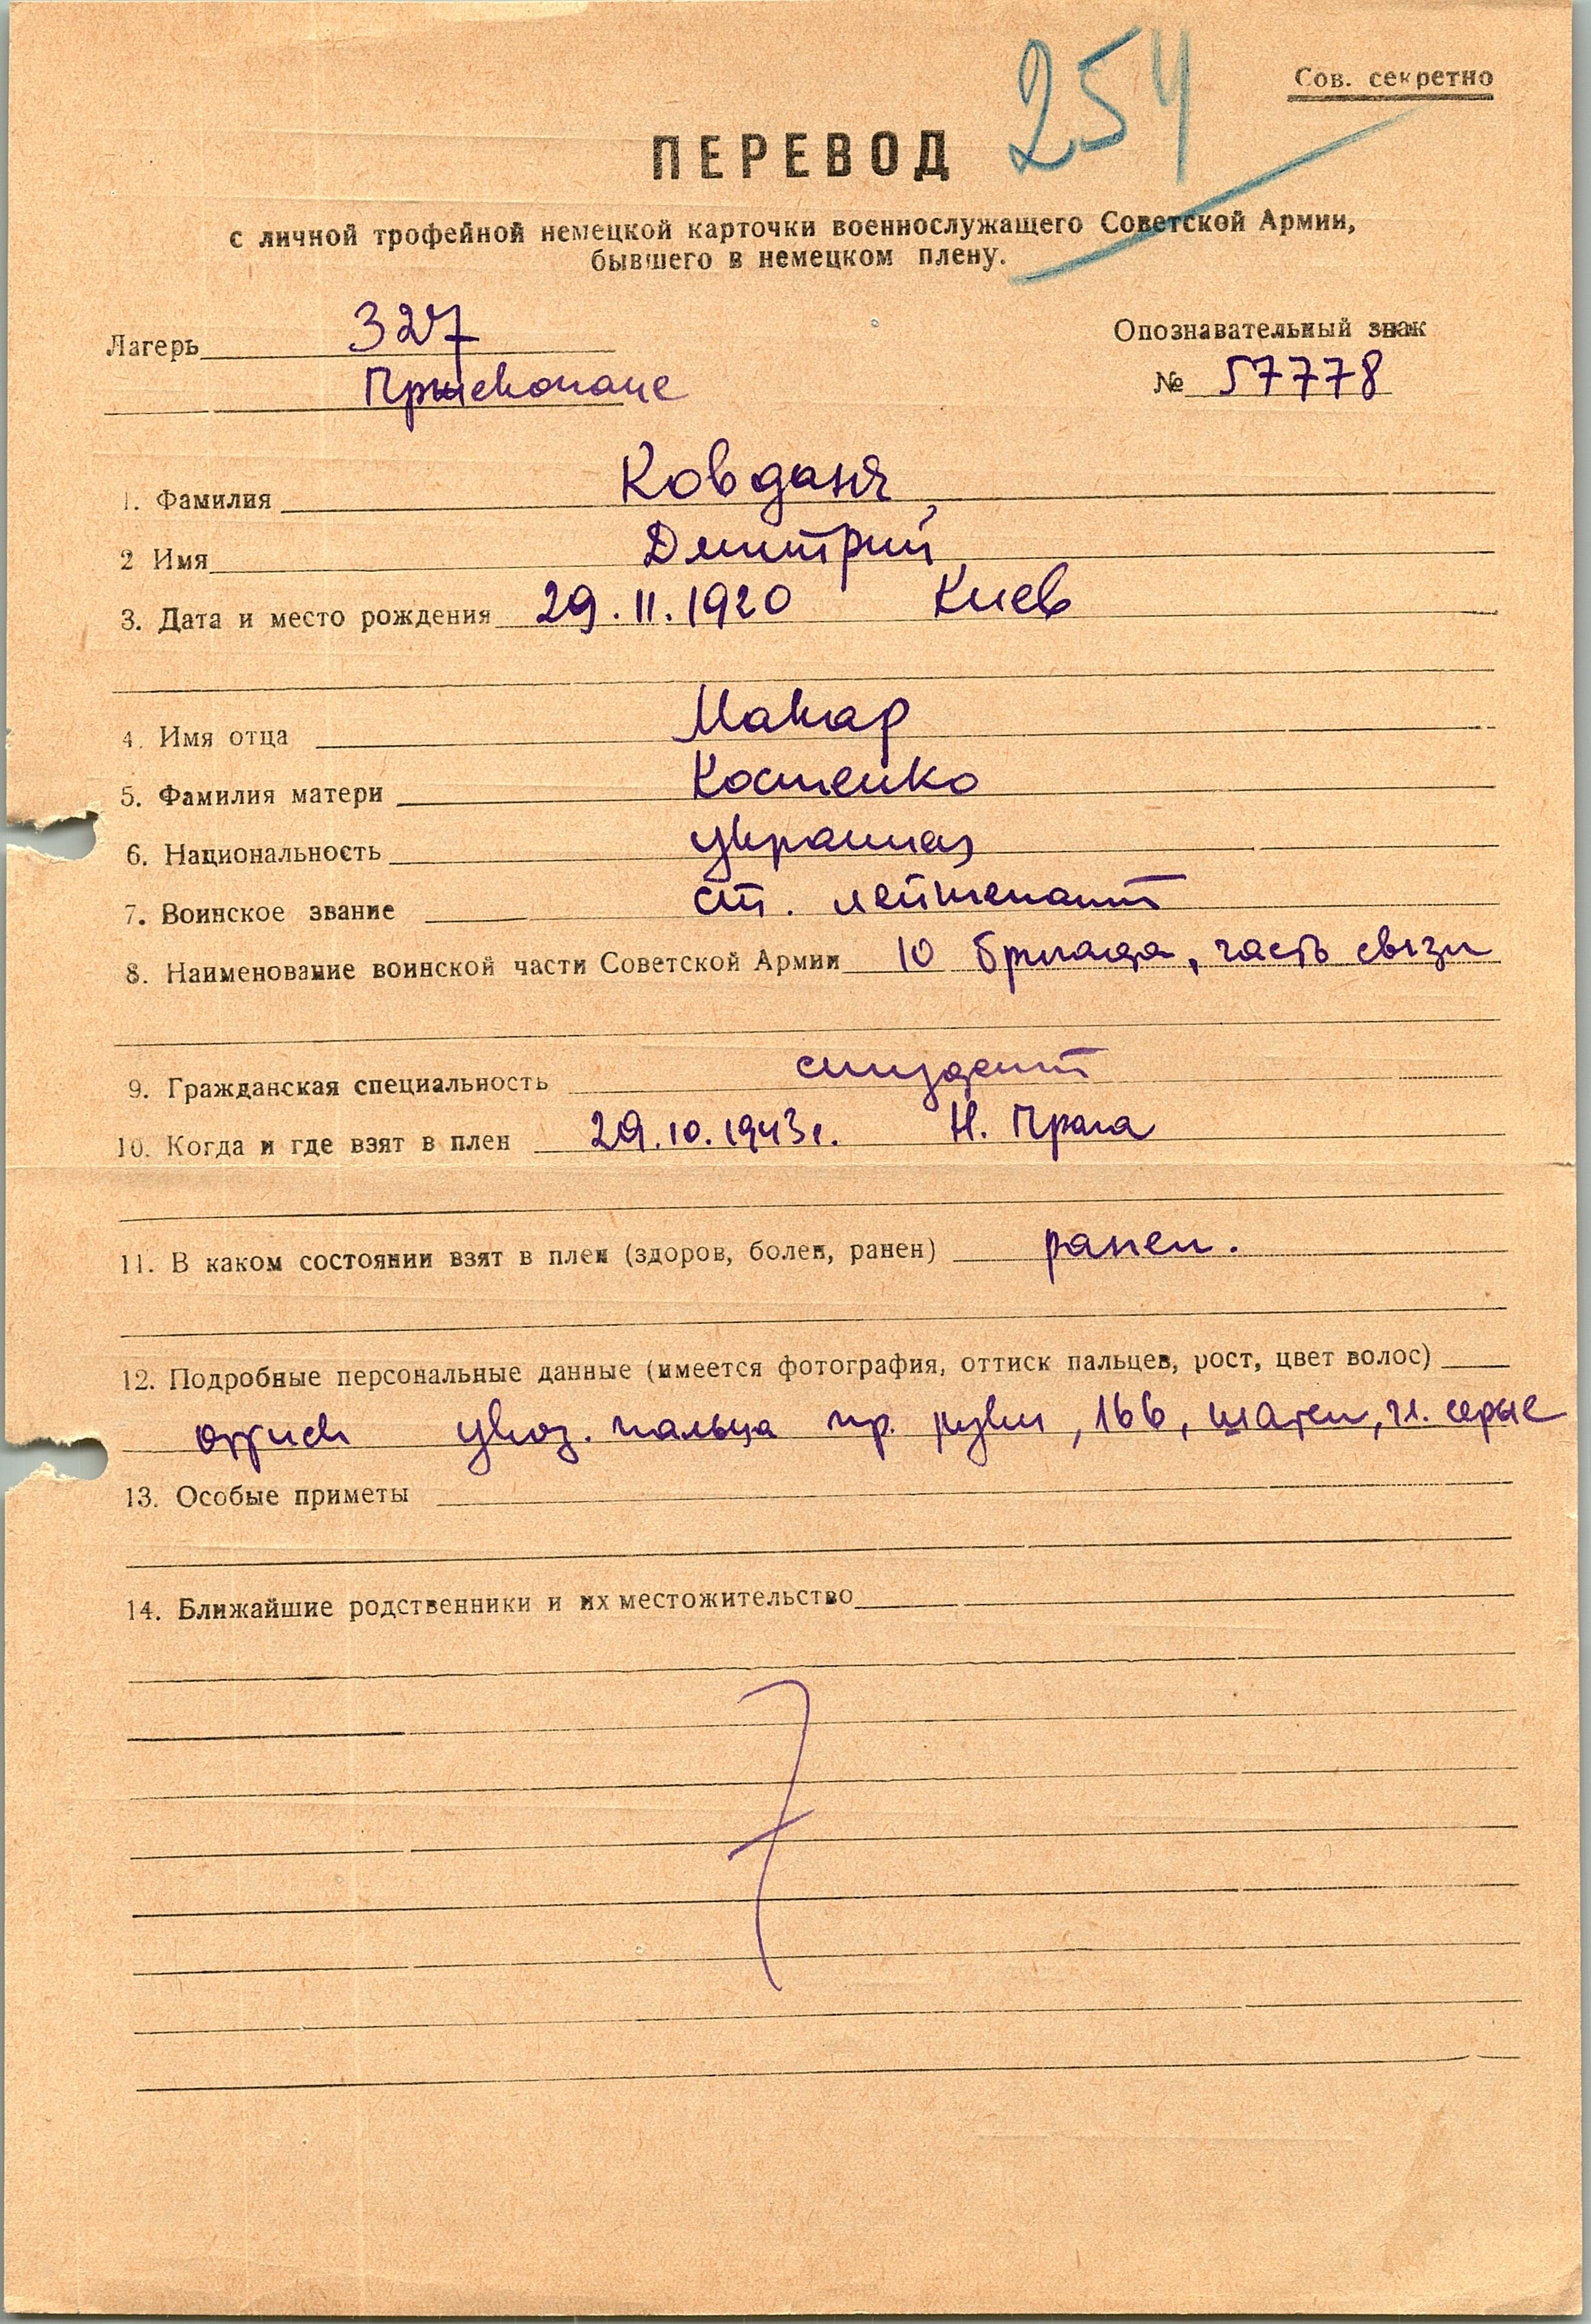 254
Сов. секретно
ПЕРЕВОД
с личной трофейной немецкой карточки военнослужащего Советской Армии,
бывшего в немецком плену.
Лагерь 327
Опознавательный знак
№ 57778
1. Фамилия Ковданя
2 Имя Дмитрий
3. Дата и место рождения 29.11.1920 Киев
4. Имя отца Макар
5. Фамилия матери Костенко
6. Национальность
7. Воинское звание ст. лейтенант
8. Наименование воинской части Советской Армии 10 бригада, часть связи
9. Гражданская специальность студент
10. Когда и где взят в плен 29.10.1943г. Н. Прага
11. В каком состоянии взят в плен (здоров, болен, ранен) ранен.
12. Подробные персональные данные (имеется фотография, оттиск пальцев, рост, цвет волос)
оттиск указ. пальца пр. руки, 166, шатен, гл. серые
13. Особые приметы
14. Ближайшие родственники и их местожительство